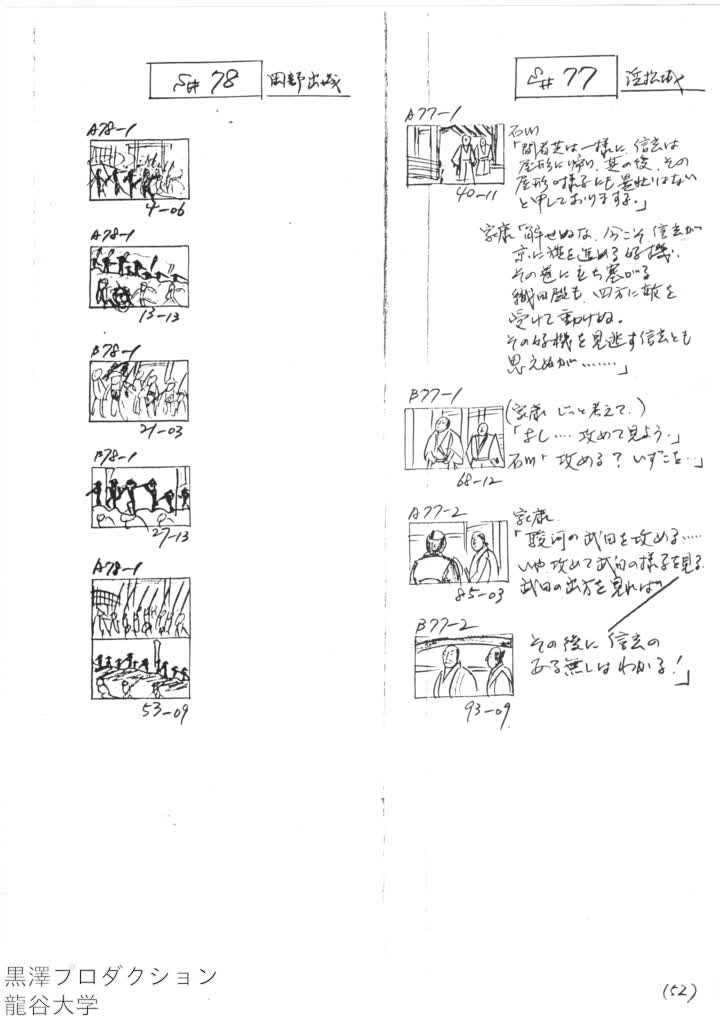 S# 77 浜松城
A77-1
石川
「間者共は一様に、信玄は
屋形に帰り、其の後、その
屋形の様子にも異状はない
と申しております。」
40-11
家康「解せぬな、今こそ信玄が
京に旗を進める好機、
その道に立ち塞がる
織田殿も、四方に敵を
受けて動けぬ。
その好機を見逃す信玄とも
思えぬが……」
B77-1
(家康 じっと考えて、)
「よし…攻めて見よう。」
石川「攻める? いずこを…」
68-12
A77-2
家康
「駿河の武田を攻める……
いや、攻めて武田の様子を見る
武田の出方を見れば
85-03
B77-2
その後に信玄の
ある無しはわかる!」
93-09
S# 78 出城
A78-1
4-06
A78-1
13-13
B78-1
21-03
B78-1
27-13
A78-1
53-09
(52)
黒澤プロダクション
龍谷大学